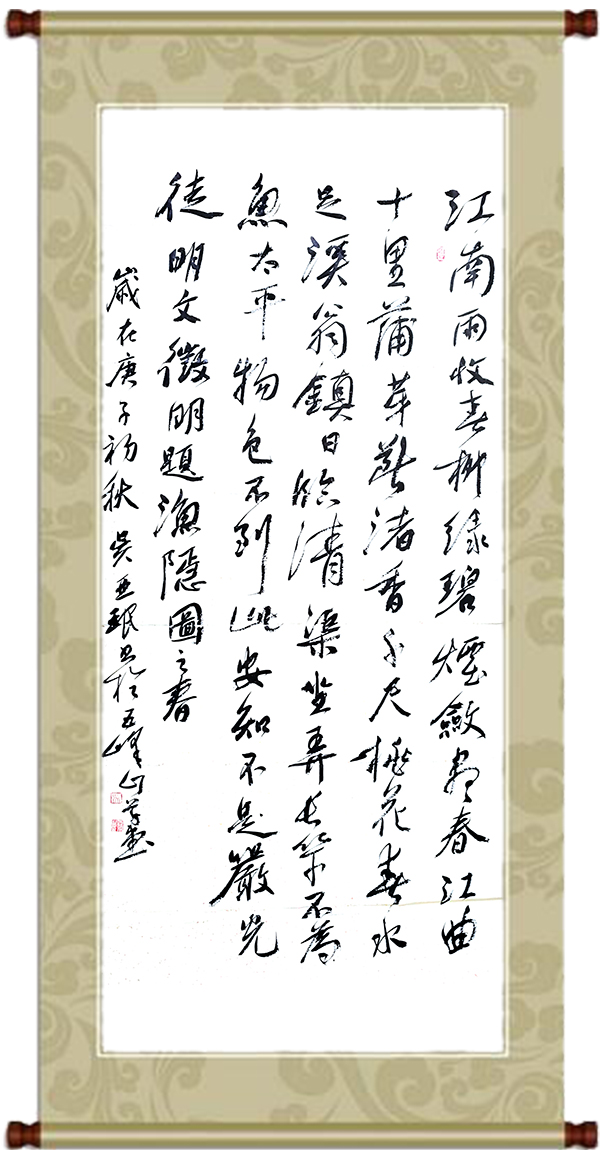 江南雨收春柳綠碧煙斂盡春江曲
十里蒲芽斷渚香千尺桃花春水
足溪翁鎮日臨清渠坐弄長竿不為
魚太平物色不到此安知不是嚴光
徒明文徵明題漁隱圖之春
歲在庚子初秋吳亞珉書於五峰山草堂